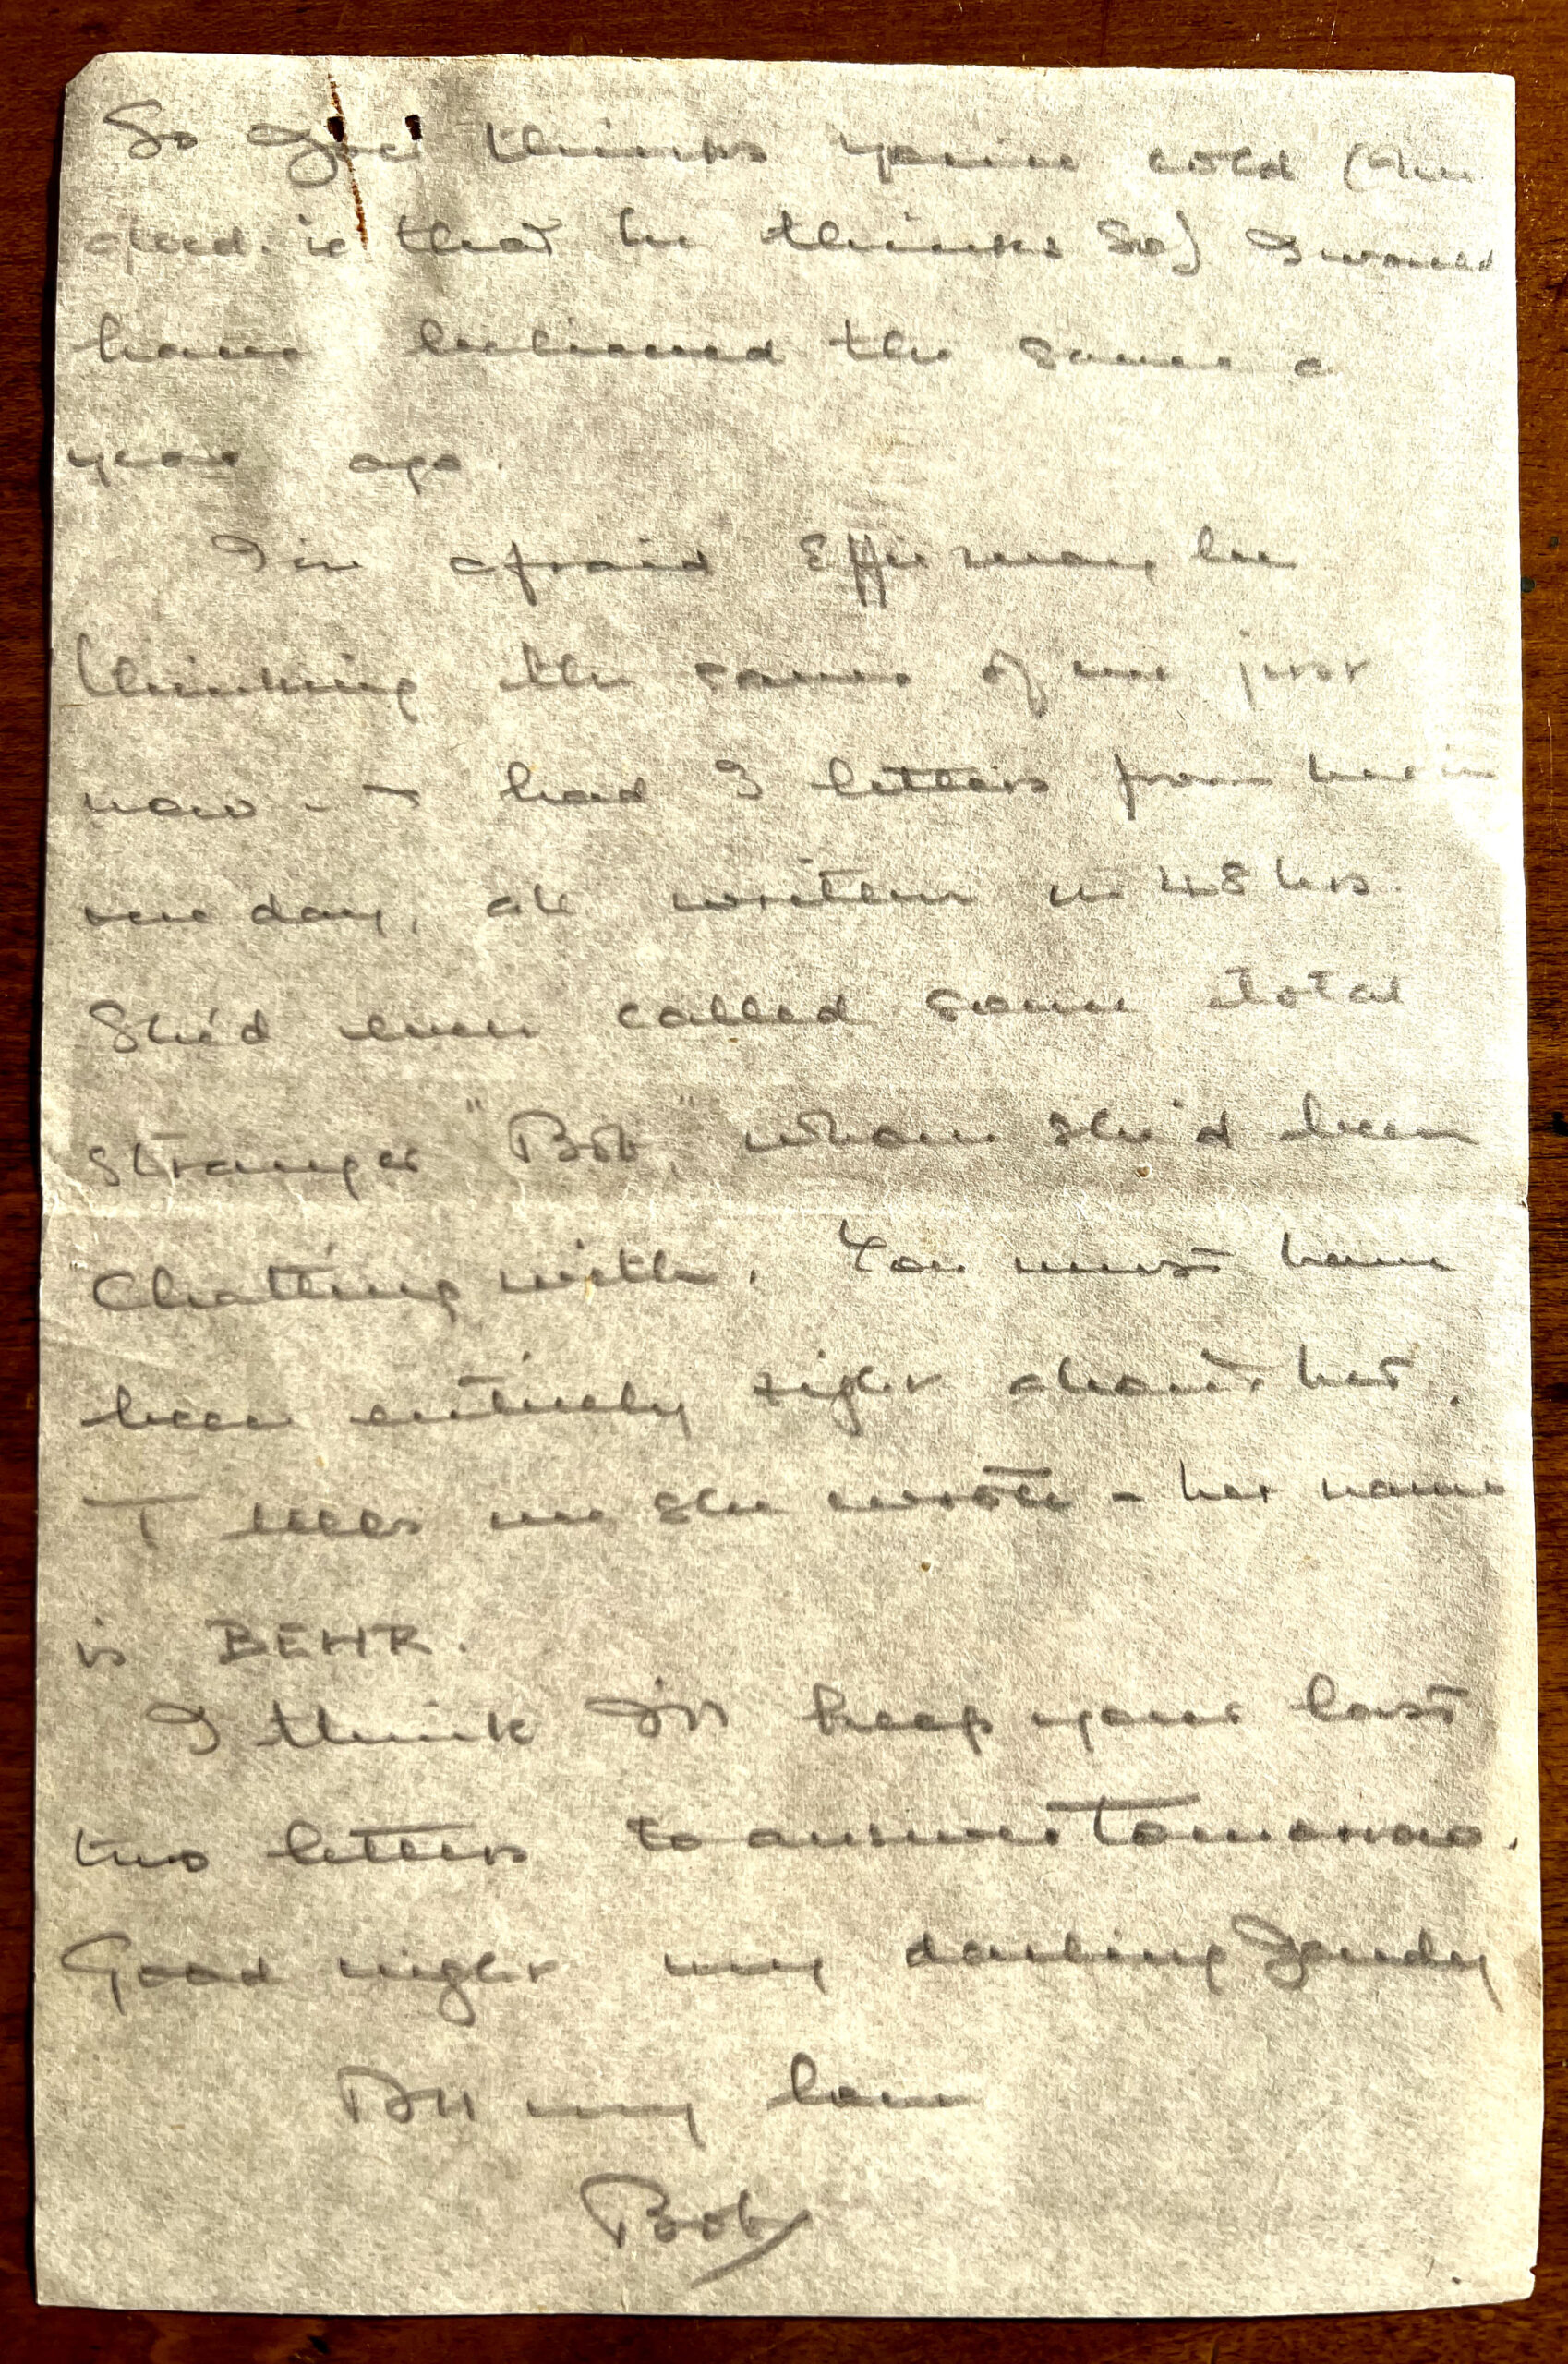 So thinks you're cold (the
is that he thinks so) I would
have believed the same a
year ago.
I'm afraid Effie may be
thinking the same of me just
now - I had 3 letters from her in
one day, all written in 48 hrs.
She'd even called some total
stranger "Bob," whom she'd been
chatting with. You must have
been entirely right about her.
T tells me she wrote - her name
is BEHR.
I think I'll keep your last
two letters to answer tomorrow.
Good night my darling
All my love
Bob